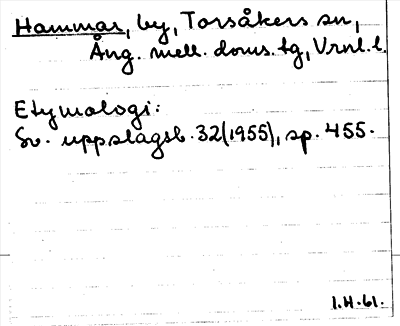 Hammar, by, Torsåkers sn,
Ång. mell. doms. tg, Vrnl. l.
Etymologi:
Sv. uppslagsb. 32(1955), sp. 455.
1.H.61.